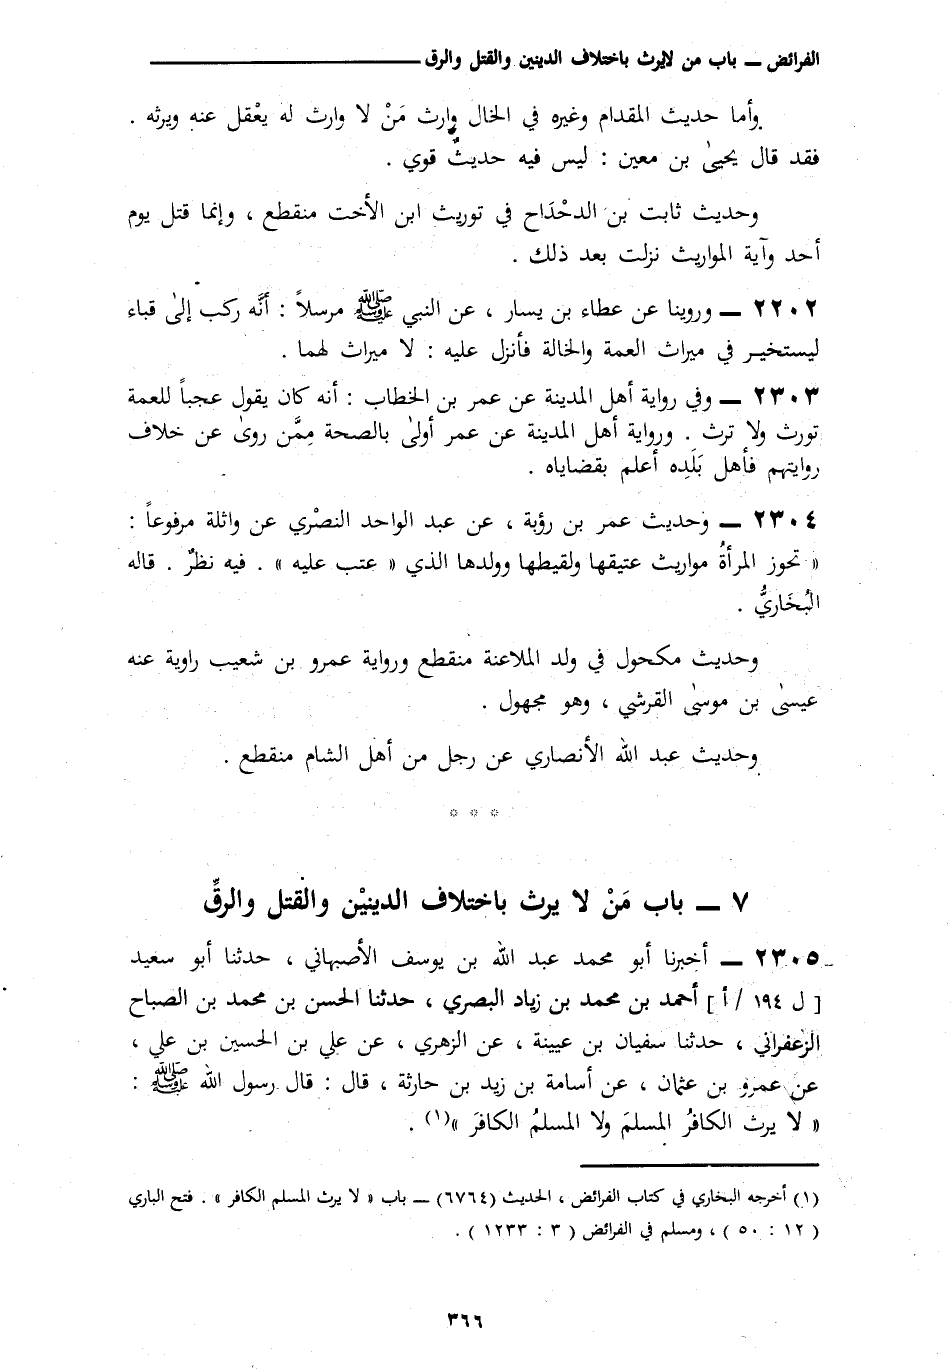 الفرائض — باب من لايرث باختلاف الدينين والقتل والرق
وأما حديث المقدام وغيره في الخال وارث مَنْ لا وارث له يعْقل عنه ويرثه .
فقد قال يحيىٰ بن معين : ليس فيه حديثٌ قوي .
وحديث ثابت بن الدحْدَاح في توريث ابن الأخت منقطع ، وإنما قتل يوم
أحد وآية المواريث نزلت بعد ذلك .
٢٢٠٢ — وروينا عن عطاء بن يسار ، عن النبي ﷺ مرسلاً : أنَّه ركب إلىٰ قباء
ليستخير في ميراث العمة والخالة فأنزل عليه : لا ميراث لهما .
٢٣٠٣ — وفي رواية أهل المدينة عن عمر بن الخطاب : أنه كان يقول عجباً للعمة
تورث ولا ترث . ورواية أهل المدينة عن عمر أولىٰ بالصحة مِمَّن روىٰ عن خلاف
روايتهم فأهل بَلَدِه أعلم بقضاياه .
٢٣٠٤ — وحديث عمر بن رؤبة ، عن عبد الواحد النصْري عن واثلة مرفوعاً :
« تحوز المرأةُ مواريث عتيقها ولقيطها وولدها الذي « عتب عليه » . فيه نظرٌ . قاله
البُخَاريُّ .
وحديث مكحول في ولد الملاعنة منقطع ورواية عمرو بن شعيب راوية عنه
عيسىٰ بن موسىٰ القرشي ، وهو مجهول .
وحديث عبد الله الأنصاري عن رجل من أهل الشام منقطع .
* * *
٧ — باب مَنْ لا يرث باختلاف الدينيْن والقتل والرقِّ
٢٣٠٥ — أخبرنا أبو محمد عبد الله بن يوسف الأصبهاني ، حدثنا أبو سعيد
[ ل ١٩٤ / أ ] أحمد بن محمد بن زياد البصري ، حدثنا الحسن بن محمد بن الصباح
الزعفراني ، حدثنا سفيان بن عيينة ، عن الزهري ، عن علي بن الحسين بن علي ،
عن عمرو بن عثمان ، عن أسامة بن زيد بن حارثة ، قال : قال رسول الله ﷺ :
« لا يرث الكافرُ المسلمَ ولا المسلمُ الكافرَ »(١) .
(١) أخرجه البخاري في كتاب الفرائض ، الحديث (٦٧٦٤) — باب « لا يرث المسلم الكافر » . فتح الباري
( ١٢ : ٥٠ ) ، ومسلم في الفرائض ( ٣ : ١٢٣٣ ) .
٣٦٦